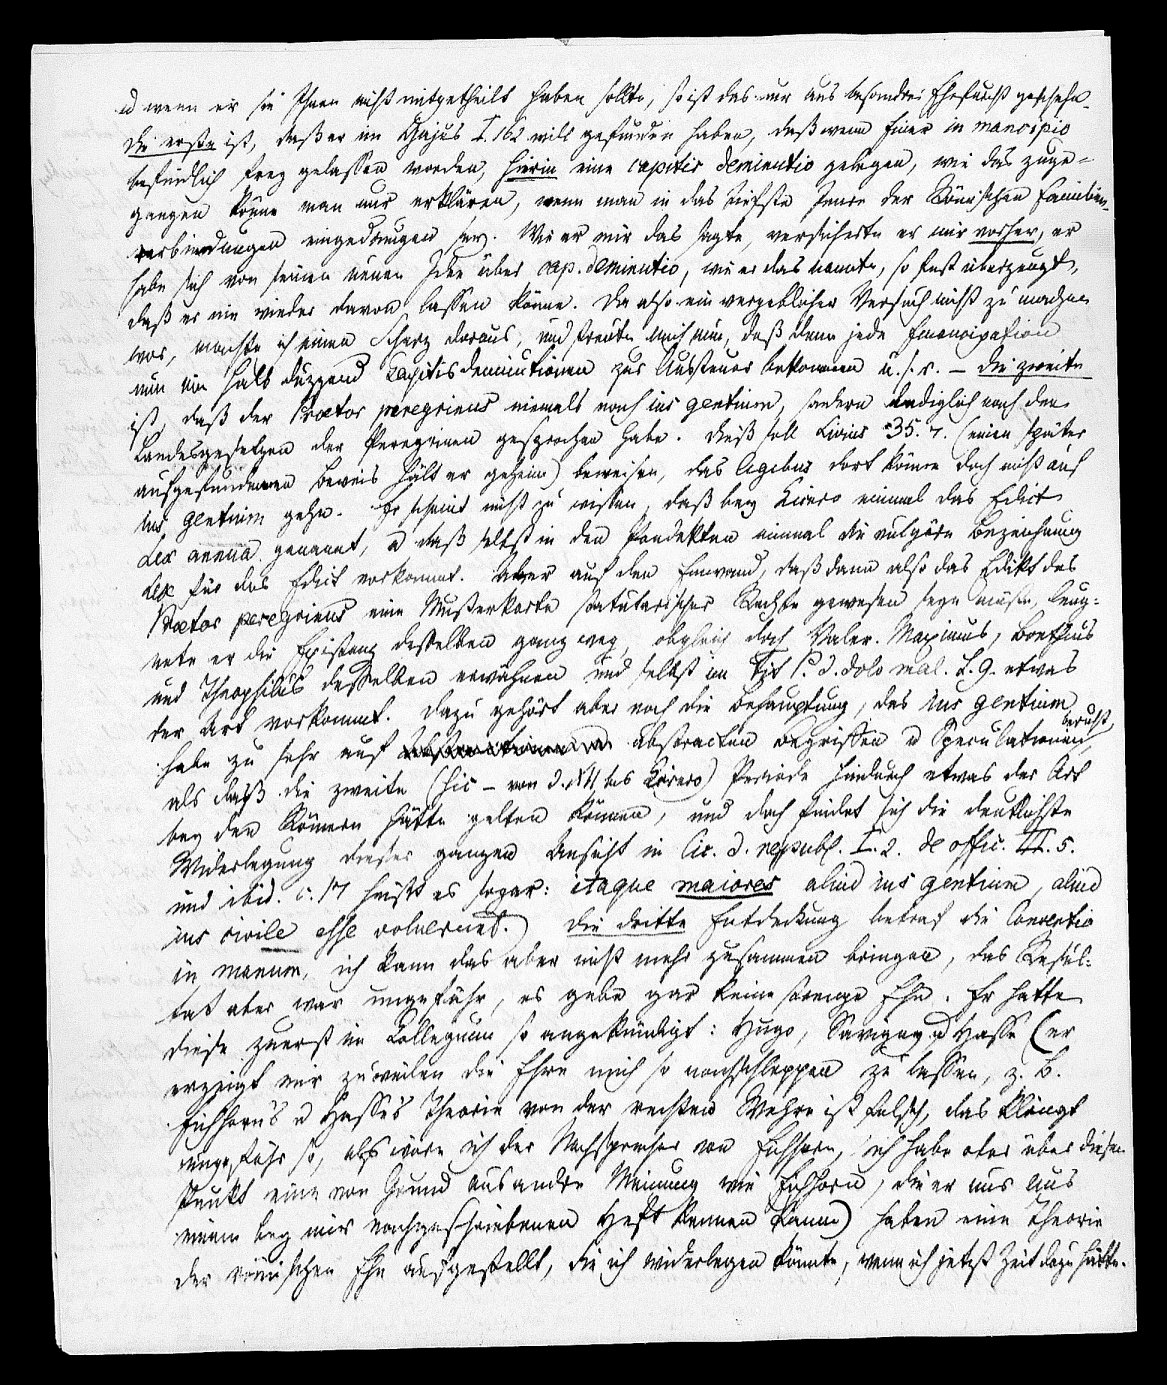 u wenn er sie Ihnen nicht mitgetheilt haben sollte, so ist das nur aus besondrer Ehrfurcht geschehn.
Die erste ist, daß er im Gajus I. 162 will gefunden haben, daß wenn Einer in mancipio
befindlich frey gelassen worden, hierin eine capitis deminutio gelegen, wie das zuge-
gangen könne man nur erklären, wenn man in das tiefste Innre der Römischen Familien-
verbindungen eingedrungen sey. Wie er mir das sagte, versicherte er mir vorher, er
habe sich von seinen neuen Idee über cap. deminutio, wie er das nannte, so fest überzeugt,
daß er nie wieder davon lassen könne. Da also ein vergeblicher Versuch nicht zu machen
war, machte ich einen Scherz daraus, und freute mich nun, daß denn jede Emancipation
nun ein halb duzzend Capitisdeminutionen zur Aussteuer bekommen u.s.w. – die zweite
ist, daß der Praetor peregrinus niemals nach ius gentium, sondern lediglich nach den
Landesgesetzen der Peregrinen gesprochen habe. Dieß soll Livius 35. 7. (einen später
aufgefundenen Beweis hält er geheim) beweisen, das legibus dort könne doch nicht auf
ius gentium gehn. Er scheint nicht zu wissen, daß bey Cicero einmal das Edict
Lex annua genannt, u daß selbst in den Pandekten einmal die vulgäre Bezeichnung
lex für das Edict vorkommt. Aber auf den Einwand, daß dann also das Edikt des
Praetor peregrinus eine Musterkarte statutarischer Rechte gewesen seyn müsse, leug-
nete er die Existenz desselben ganz weg, obgleich doch Valer. Maximus, Boethius
und Theophilus desselben erwähnen und selbst im Tit P. d. dolo mal. L. 9. etwas
der Art vorkommt. Dazu gehört aber noch die Behauptung, das ius gentium
habe zu sehr auf abstracten Begriffen u Speculationen beruht,
als daß die zweite (hic – von d. XII bis Cicero) Periode hindurch etwas der Art
bey den Römern hätte gelten können, und doch findet sich die deutlichste
Widerlegung dieser ganzen Ansicht in Cic. d. republ. I. 2. de offic. III. 5.
und ibid. c. 17 heißt es sogar: itaque maiores aliud ius gentium, aliud
ius civile esse voluerunt.) Die dritte Entdeckung betraf die Conventio
in manum, ich kann das aber nicht mehr zusammen bringen, das Resul-
tat aber war ungefähr, es gebe gar keine strenge Ehe. Er hatte
diese zuerst im Collegium so angekündigt: Hugo, Savigny u Hasse (er
erzeigt mir zuweilen die Ehre mich so nachschleppen zu lassen, z. B.
Eichhorn's u Hasse's Theorie von der rechten Wehre ist falsch, das klingt
ungefähr so, als wäre ich der Nachsprecher von Eichhorn, ich habe aber über diesen
Punkt eine von Grund aus andre Meinung wie Eichhorn, die er nur aus
einem bey mir nachgeschriebenen Heft kennen kann) haben eine Theorie
der römischen Ehe aufgestellt, die ich widerlegen könnte, wenn ich jetzt Zeit dazu hätte.